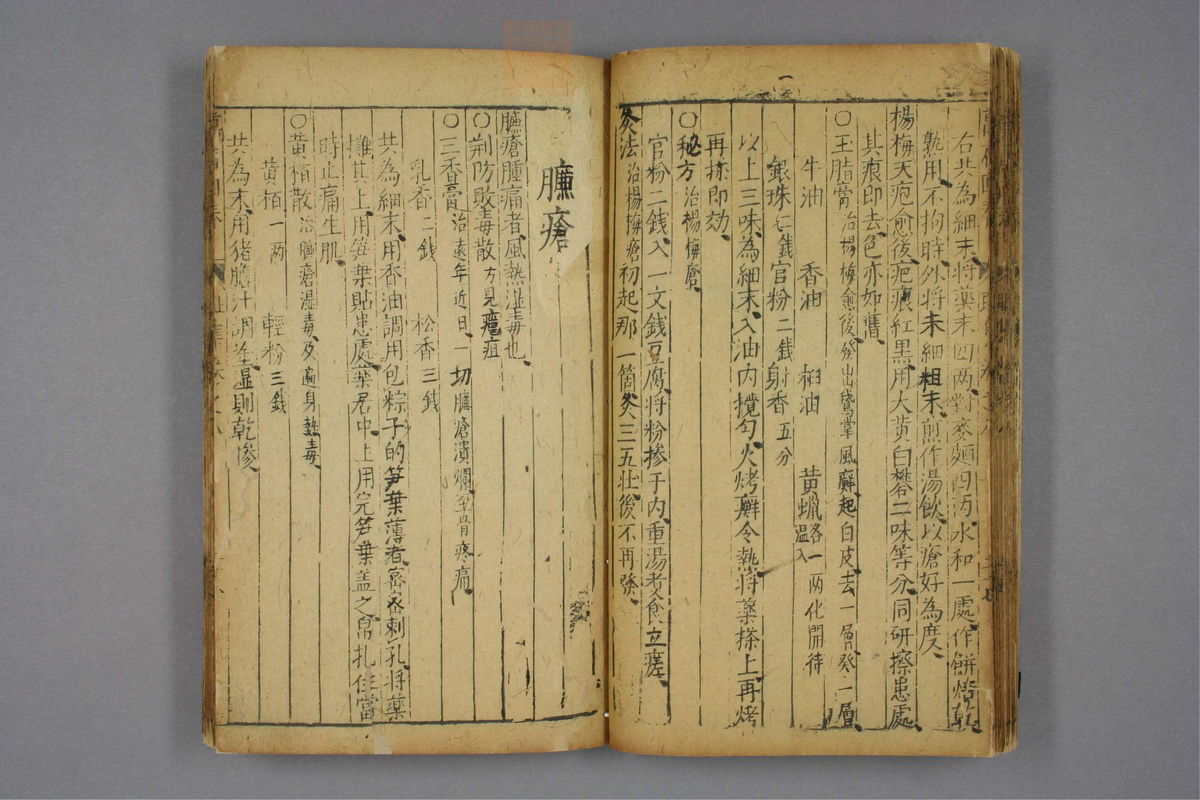 右共為細末將藥末四兩對麥麵四兩水和一處作餅烤乾
熟用不拘時外將末細粗末煎作湯飲以瘡好為度
楊梅天疱愈後疤痕紅黑用大黃白礬二味等分同研擦患處
其痕即去色亦如舊
〇玉脂膏治楊梅愈後發出鵝掌風癬起白皮去一層發一層
牛油 香油 桕油 黃蠟各一兩化開待溫入
銀珠二錢官粉二錢射香五分
以上三味為細末入油內攪勻火烤癬令熱將藥搽上再烤
再抹即効
〇秘方治楊梅瘡
官粉二錢入一文錢豆腐將粉摻于內重湯煮食立瘥
灸法治楊梅瘡初起那一箇灸三五壯後不再發
臁瘡
臁瘡腫痛者風熱濕毒也
〇荊防敗毒散方見癰疽
〇三香膏治遠年近日一切臁瘡潰爛至骨疼痛
乳香二錢 松香三錢
共為細末用香油調用包粽子的笋葉薄者密密刺孔將藥
攤其上用笋葉貼患處藥居中上用完笋葉蓋之帛扎住當
時止痛生肌
〇黃栢散治臁瘡濕毒及遍身熱毒
黃栢一兩 輕粉三錢
共為末用猪膽汁調塗濕則乾摻